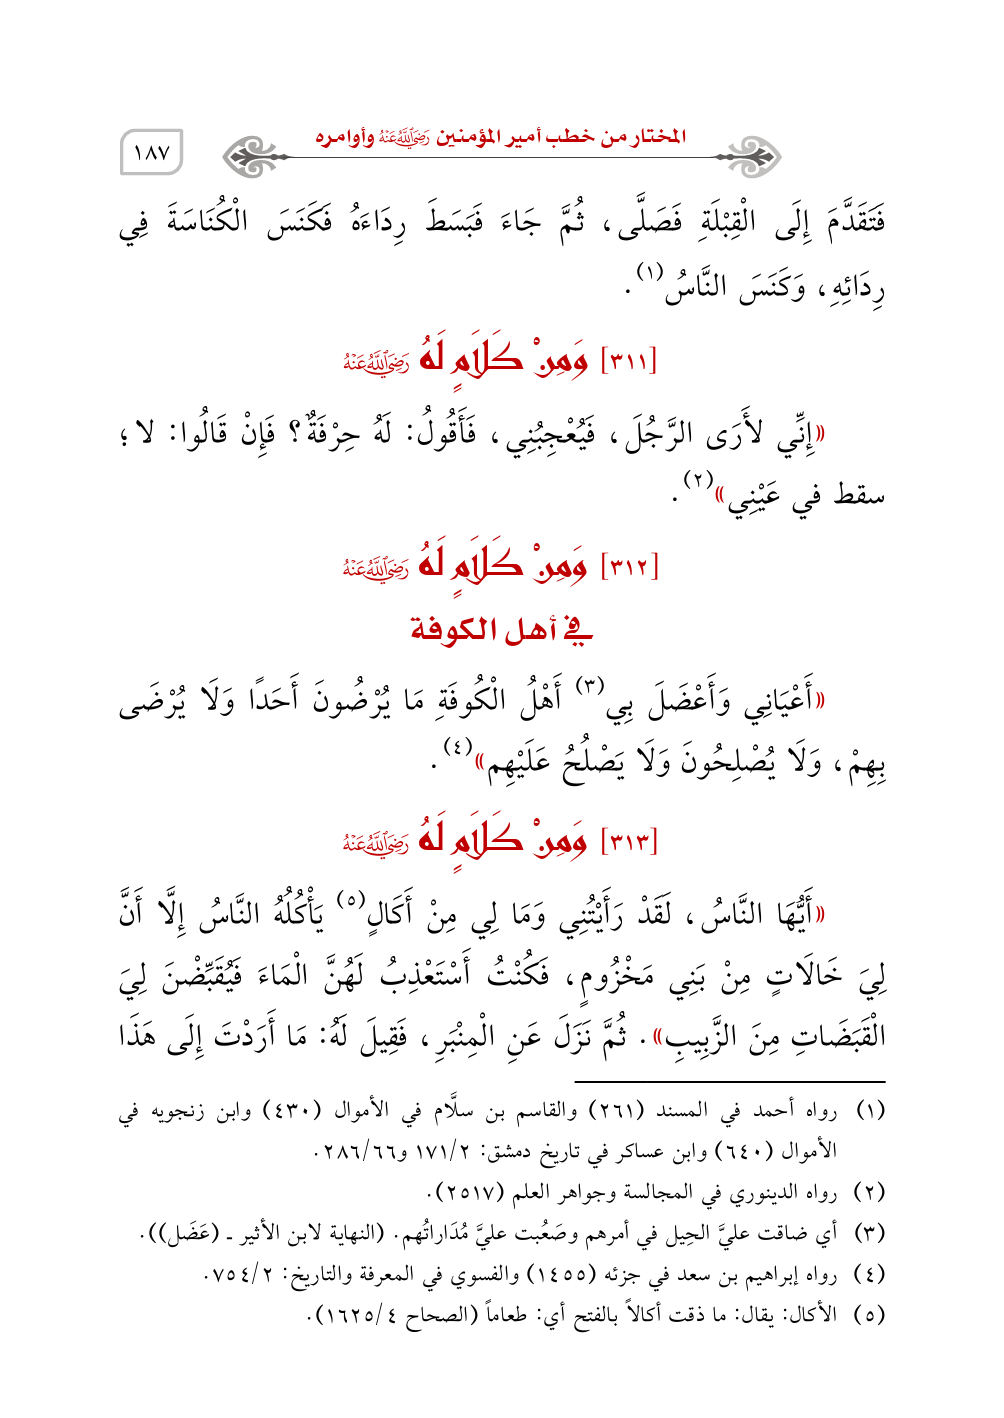 المختار من خطب أمير المؤمنين رَضِيَ اللَّهُ عَنْهُ وأوامره
١٨٧
فَتَقَدَّمَ إِلَى الْقِبْلَةِ فَصَلَّى، ثُمَّ جَاءَ فَبَسَطَ رِدَاءَهُ فَكَنَسَ الْكُنَاسَةَ فِي
رِدَائِهِ، وَكَنَسَ النَّاسُ(١).
[٣١١] وَمِنْ كَلَامٍ لَهُ رَضِيَ اللَّهُ عَنْهُ
«إِنِّي لأَرَى الرَّجُلَ، فَيُعْجِبُنِي، فَأَقُولُ: لَهُ حِرْفَةٌ؟ فَإِنْ قَالُوا: لا؛
سقط في عَيْنِي»(٢).
[٣١٢] وَمِنْ كَلَامٍ لَهُ رَضِيَ اللَّهُ عَنْهُ
في أهل الكوفة
«أَعْيَانِي وَأَعْضَلَ بِي(٣) أَهْلُ الْكُوفَةِ مَا يُرْضُونَ أَحَدًا وَلَا يُرْضَى
بِهِمْ، وَلَا يُصْلِحُونَ وَلَا يَصْلُحُ عَلَيْهِم»(٤).
[٣١٣] وَمِنْ كَلَامٍ لَهُ رَضِيَ اللَّهُ عَنْهُ
«أَيُّهَا النَّاسُ، لَقَدْ رَأَيْتُنِي وَمَا لِي مِنْ أَكَالٍ(٥) يَأْكُلُهُ النَّاسُ إِلَّا أَنَّ
لِيَ خَالَاتٍ مِنْ بَنِي مَخْزُومٍ، فَكُنْتُ أَسْتَعْذِبُ لَهُنَّ الْمَاءَ فَيُقَبِّضْنَ لِيَ
الْقَبَضَاتِ مِنَ الزَّبِيبِ». ثُمَّ نَزَلَ عَنِ الْمِنْبَرِ، فَقِيلَ لَهُ: مَا أَرَدْتَ إِلَى هَذَا
(١) رواه أحمد في المسند (٢٦١) والقاسم بن سلَّام في الأموال (٤٣٠) وابن زنجويه في
الأموال (٦٤٠) وابن عساكر في تاريخ دمشق: ١٧١/٢ و٢٨٦/٦٦.
(٢) رواه الدينوري في المجالسة وجواهر العلم (٢٥١٧).
(٣) أي ضاقت عليَّ الحِيل في أمرهم وصَعُبت عليَّ مُدَاراتُهم. (النهاية لابن الأثير ـ (عَضَل)).
(٤) رواه إبراهيم بن سعد في جزئه (١٤٥٥) والفسوي في المعرفة والتاريخ: ٧٥٤/٢.
(٥) الأكال: يقال: ما ذقت أكالاً بالفتح أي: طعاماً (الصحاح ١٦٢٥/٤).